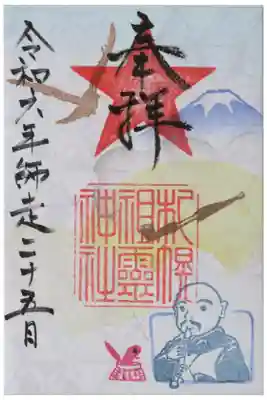 奉拝
札幌
祖靈
神社
令和六年師走二十五日